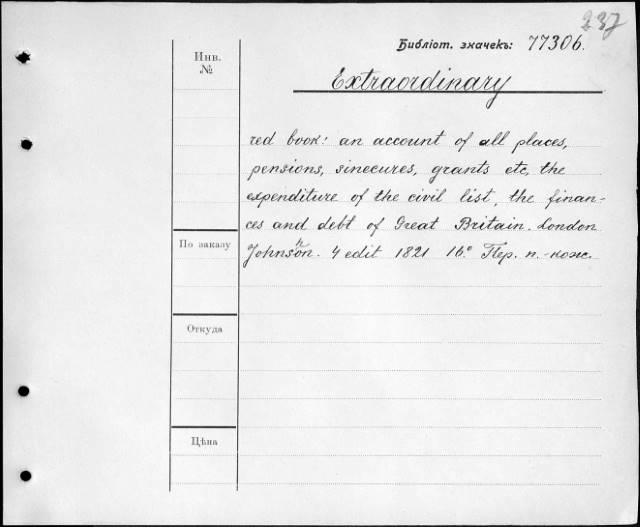 237
Библіот. значекъ: 77306.
Инв.
№
Extraordinary
red book: an account of all places,
pensions, sinecures, grants etc, the
expenditure of the civil list, the finan-
ces and debt of Great Britain. London
По заказу
Johnson. 4 edit 1821 16° Пер. п.-кож.
Откуда
Цѣна